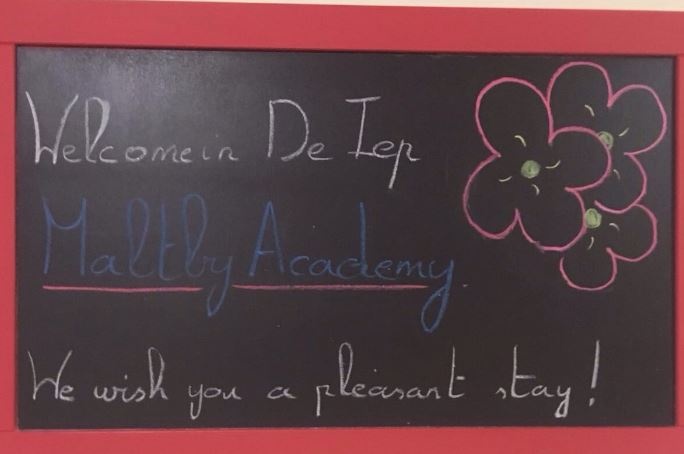 Welcome in De Iep
Maltby Academy.
We wish you a pleasant stay!